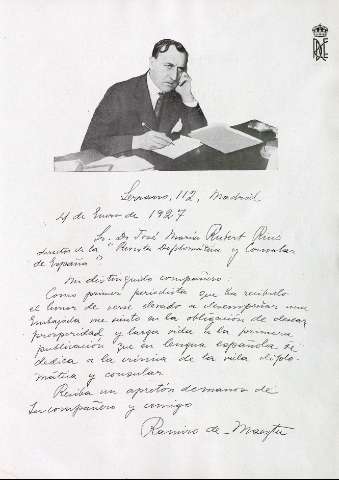 Serrano, 112, Madrid
4 de Enero de 1927
Sr. Dr. José María Rubert Rius
director de la "Revista Diplomática y Consular
de España"
Mi distinguido compañero:
Como primer periodista que ha recibido
el honor de verse elevado a desempeñar una
Embajada me siento en la obligación de desear
prosperidad y larga vida a la primera
publicación que en lengua española se
dedica a la crónica de la vida diplo-
mática y consular
Reciba un apretón de manos de
su compañero y amigo
Ramiro de Maeztu